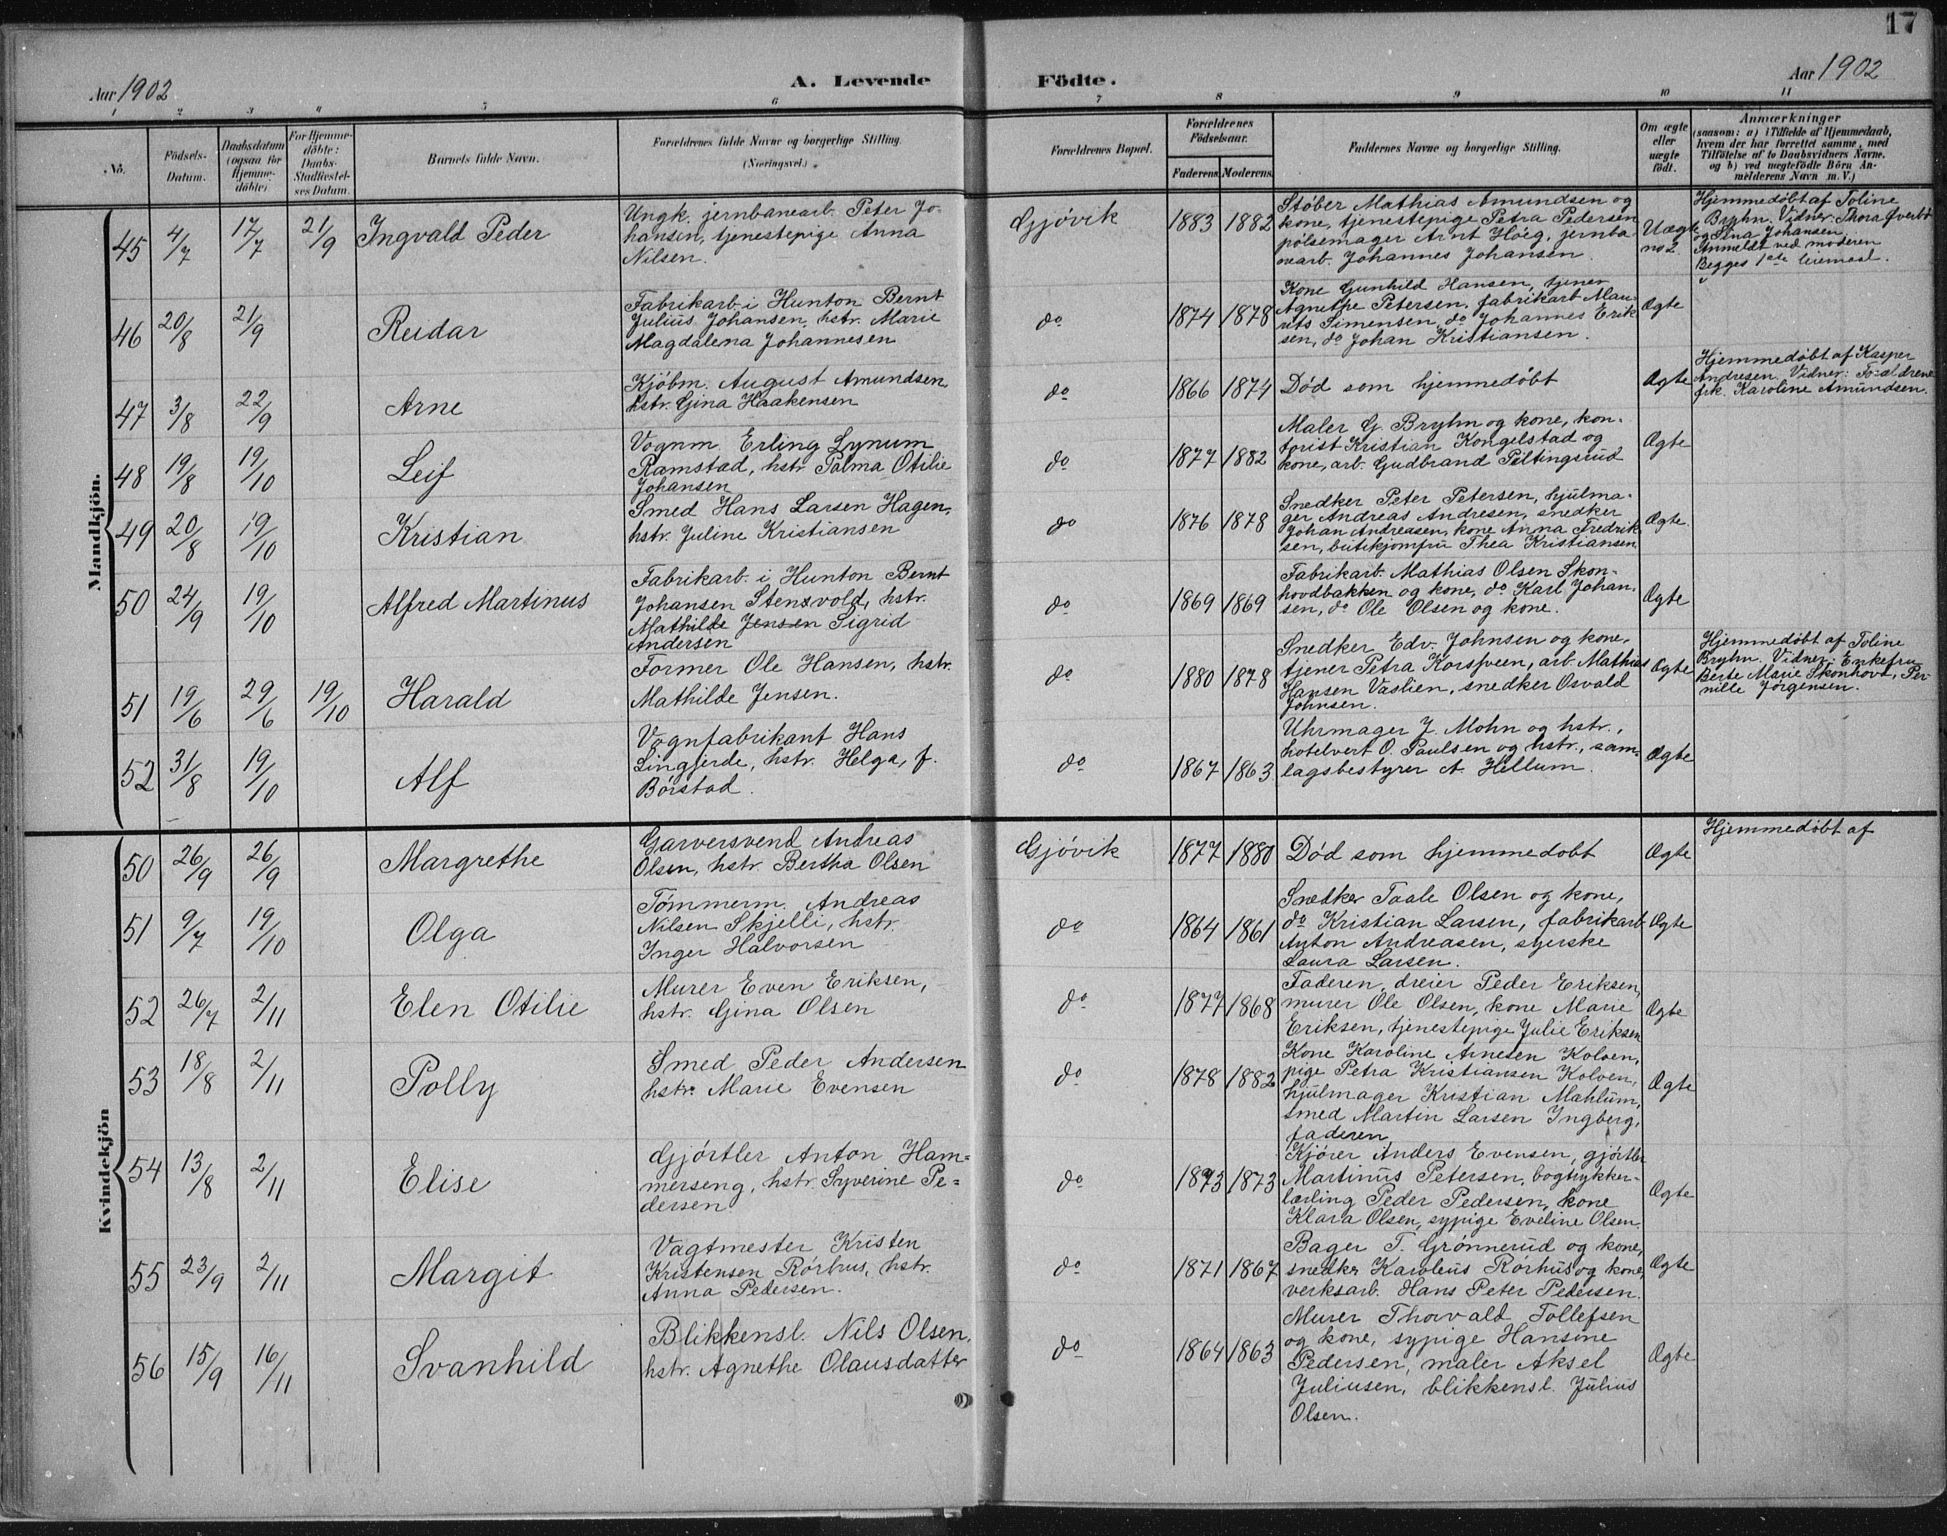 17
Aar 1902
A. Levende Födte.
Aar 1902
1 2 3 4 5 6 7 8 9 10 11
No.
Födsels-Datum.
Daabsdatum (ogsaa for Hjemme-döbte)
For Hjemme-döbte: Daabs-Stadfæstel-ses Datum.
Barnets fulde Navn.
Forældrenes fulde Navne og borgerlige Stilling.
(Næringsvei.)
Forældrenes Bopæl.
Forældrenes Födselsaar.
Faderens. Moderens.
Faddernes Navne og borgerlige Stilling.
Om ægte eller uægte födt.
Anmærkninger
(saasom: a) i Tilfælde af Hjemmedaab,
hvem der har forrettet samme, med
Tilföielse af to Daabsvidners Navne,
og b) ved uægtefödte Börn An-
melderens Navn m. V.)
Mandkjön.
45 4/7 17/7 21/9 Ingvald Peder
Ungk. jernbanearb. Peter Jo-
hansen, tjenestepige Anna
Nilsen.
Gjövik 1883 1882
Støber Mathias Amundsen og
kone, tjenestepige Petra Pedersen
pølsemager Arnt Høeg, jernba-
nearb. Johannes Johansen.
Uægte
no 2.
Hjemmedøbt af Toline
Bryhn. Vidner: Thora Øverbö
og Stina Johansen.
Anmeldt ved moderen
Begges 1ste leiermaal.
46 20/8 21/9 Reidar
Fabrikarb. i Hunton Bernt
Julius Johansen, hstr. Marie
Magdalena Johannesen
do 1874 1878
Kone Gunhild Hansen, tjener
Agnethe Petersen, fabrikarb Mau-
rits Simensen, do Johannes Erik
sen, do Johan Kristiansen.
Ægte
47 3/8 22/9 Arne
Kjøbm. August Amundsen
hstr. Gina Haakensen
do 1866 1874 Død som hjemmedøbt Ægte
Hjemmedøbt af Kasper
Andresen. Vidner: Forældrene
frk. Karoline Amundsen.
48 19/8 19/10 Leif
Vognm Erling Lynum
Ramstad, hstr. Palma Otilie
Johansen
do 1877 1882
Maler G. Bryhn og kone, kon-
torist Kristian Kongelstad og
kone, arb. Gudbrand Piltingsrud
Ægte
49 20/8 19/10 Kristian
Smed Hans Larsen Hagen,
hstr. Juline Kristiansen
do 1876 1878
Snedker Peter Petersen, hjulma-
ger Andreas Andresen, snedker
Johan Andreasen, kone Anna Fredrik
sen, butikjomfru Thea Kristiansen
Ægte
50 24/9 19/10 Alfred Martinus
Fabrikarb. i Hunton Bernt
Johansen Stensvold, hstr.
Mathilde Jensen Sigrid
Andersen
do 1869 1869
Fabrikarb. Mathias Olsen Skon-
hovdbakken og kone, do Karl Johan-
sen, do Ole Olsen og kone.
Ægte
51 19/6 29/6 19/10 Harald
Former Ole Hansen, hstr.
Mathilde Jensen.
do 1880 1878
Snedker Edv. Johnsen og kone,
tjener Petra Korsveen, arb. Mathias
Hansen Vastien, snedker Osvald
Johnsen.
Ægte
Hjemmedøbt af Toline
Bryhn. Vidner: Enkefru
Berte Marie Skonhovd, Per-
nille Jørgensen.
52 31/8 19/10 Alf
Vognfabrikant Hans
Lingjerde, hstr. Helga, f.
Børstad.
do 1867 1863
Uhrmager J. Mohn og hstr.,
hotelvert O. Paulsen og hstr., sam-
lagsbestyrer A. Hellum.
Ægte
Kvindekjön
50 26/9 26/9 Margrethe
Garversvend Andreas
Olsen, hstr. Bertha Olsen
Gjövik 1877 1880 Død som hjemmedobt Ægte
Hjemmedøbt af
51 9/7 19/10 Olga
Tømmerm. Andreas
Nilsen Skjelli, hstr.
Inger Halvorsen
do 1864 1861
Snedker Taale Olsen og kone,
do Kristian Larsen, fabrikarb.
Anton Andreasen, syerske
Laura Larsen.
Ægte
52 26/7 2/11 Elen Otilie
Murer Even Eriksen,
hstr. Gina Olsen
do 1877 1868
Faderen, dreier Peder Eriksen,
murer Ole Olsen, kone Marie
Eriksen, tjenestepige Julie Eriksen
Ægte
53 18/8 2/11 Polly
Smed Peder Andersen
hstr. Marie Evensen
do 1878 1882
Kone Karoline Arnesen Kolven,
pige Petra Kristiansen Kolven,
hjulmager Kristian Mahlum,
smed Martin Larsen Ingberg,
faderen
Ægte
54 13/8 2/11 Elise
Gjørtler Anton Ham-
merseng, hstr. Syverine Pe-
dersen
do 1873 1873
Kjører Anders Evensen, gjørtler
Martinus Petersen, bogtrykker-
lærling Peder Pedersen, kone
Klara Olsen, sypige Eveline Olsen.
Ægte
55 23/9 2/11 Margit
Vagtmester Kristen
Kristensen Rørhus, hstr.
Anna Pedersen.
do 1871 1867
Bager T. Grønnerud og kone,
snedker Karolius Rørhus og kone,
verksarb. Hans Peter Pedersen.
Ægte
56 15/9 16/11 Svanhild
Blikkensl. Nils Olsen,
hstr. Agnethe Olausdatter
do 1864 1863
Murer Thorvald Tollefsen
og kone, sypige Hansine
Pedersen, maler Aksel
Juliusen, blikkensl. Julius
Olsen.
Ægte